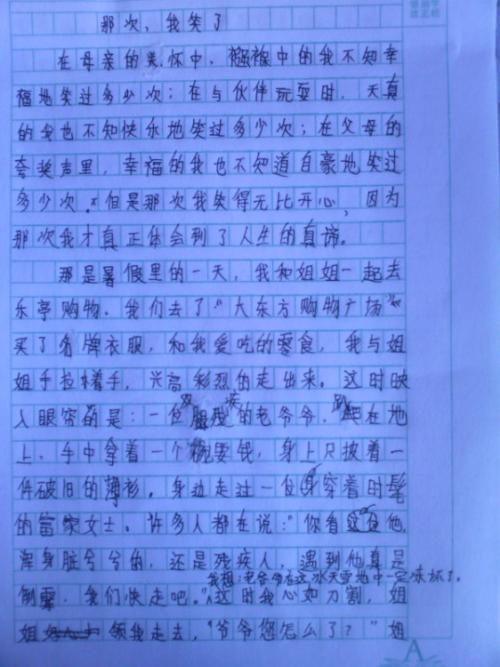 那次，我笑了
在母亲的关怀中，襁褓中的我不知幸
福地笑过多少次；在与伙伴玩耍时，天真
的我也不知快乐地笑过多少次；在父母的
夸奖声里，幸福的我也不知道自豪地笑过
多少次。但是那次我笑得无比开心，因为
那次我才真正体会到了人生的真谛。
那是暑假里的一天，我和姐姐一起去
乐亭购物。我们去了“大东方购物广场”
买了名牌衣服，和我爱吃的零食，我与姐
姐手拉着手，兴高彩烈的走出来。这时映
入眼帘的是：一位双腿残疾的老爷爷，趴在地
上，手中拿着一个碗要钱，身上只披着一
件破旧的薄衫。身边走过一位身穿着时髦
的富家女士。许多人都在说：“你看他，
浑身脏兮兮的，还是残疾人，遇到他真是
我想：老爷爷在这冰天雪地中一定冻坏了。
倒霉，我们快走吧。”这时我心如刀割，姐
姐领我走去，“爷爷您怎么了？”姐